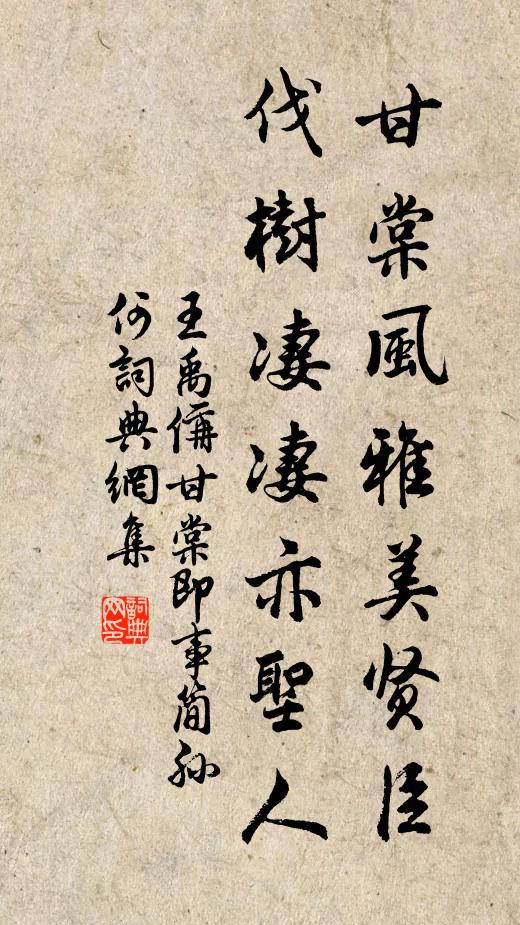 甘棠風雅美贤臣
伐樹凄凄亦聖人
王禹偁甘棠即事简孙
何詞典網集
詞典
网印